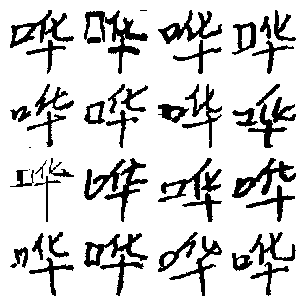 哗哗哗哗
哗哗哗哗
哗哗哗哗
哗哗哗哗